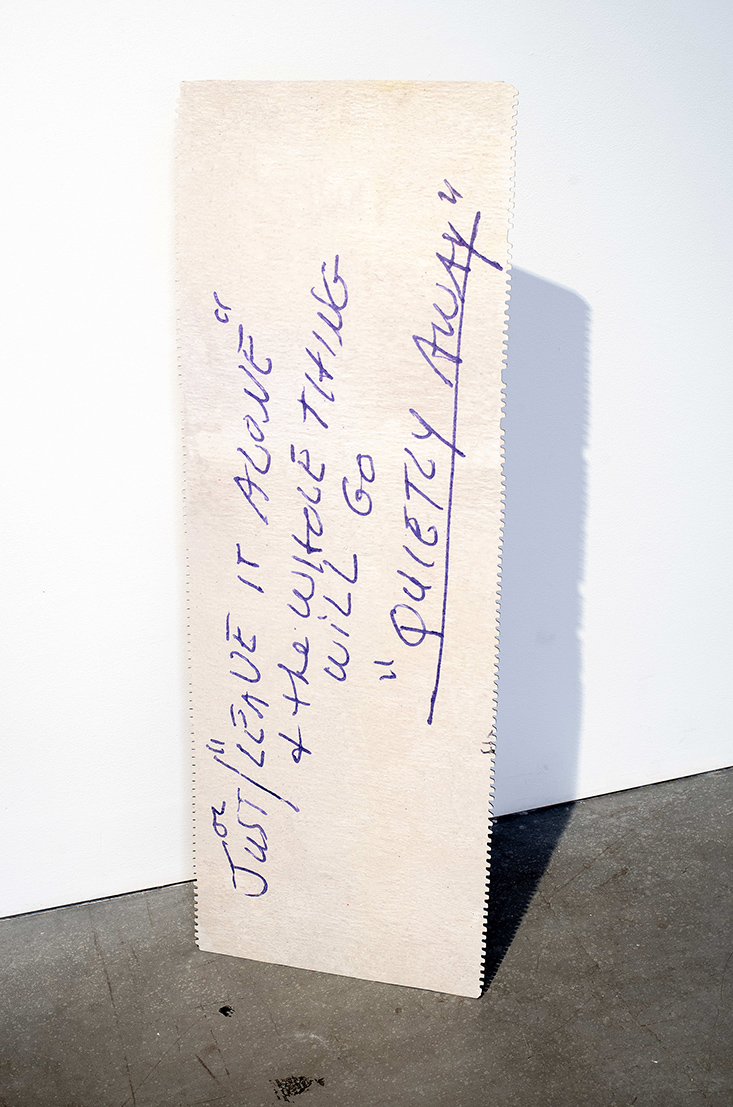 or
JUST/"LEAVE IT ALONE"
& the WHOLE THING
WILL GO
"QUIETLY AWAY"